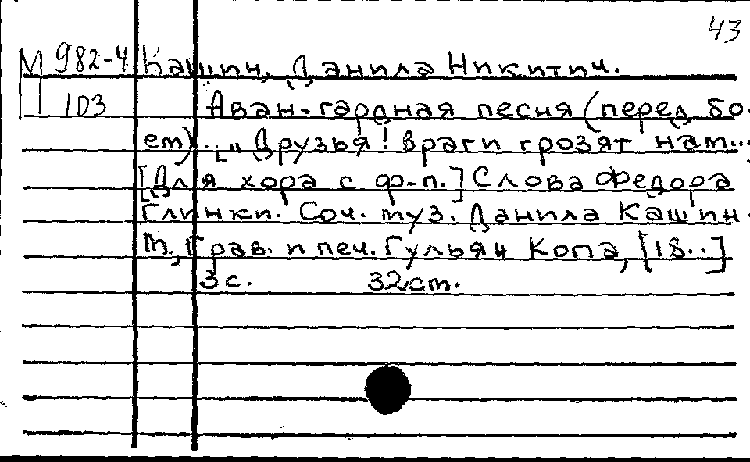 43
М 982-4 Кашин, Данила Никитич.
103 Аван-гардная песня (перед бо-
ем). ["Друзья! враги грозят нам...
[Для хора с ф.-п.] Слова Федора
Глинки. Соч. муз. Данила Кашин.
М., Грав. и печ. Гульян Копа, [18..]
3 с. 32 cm.